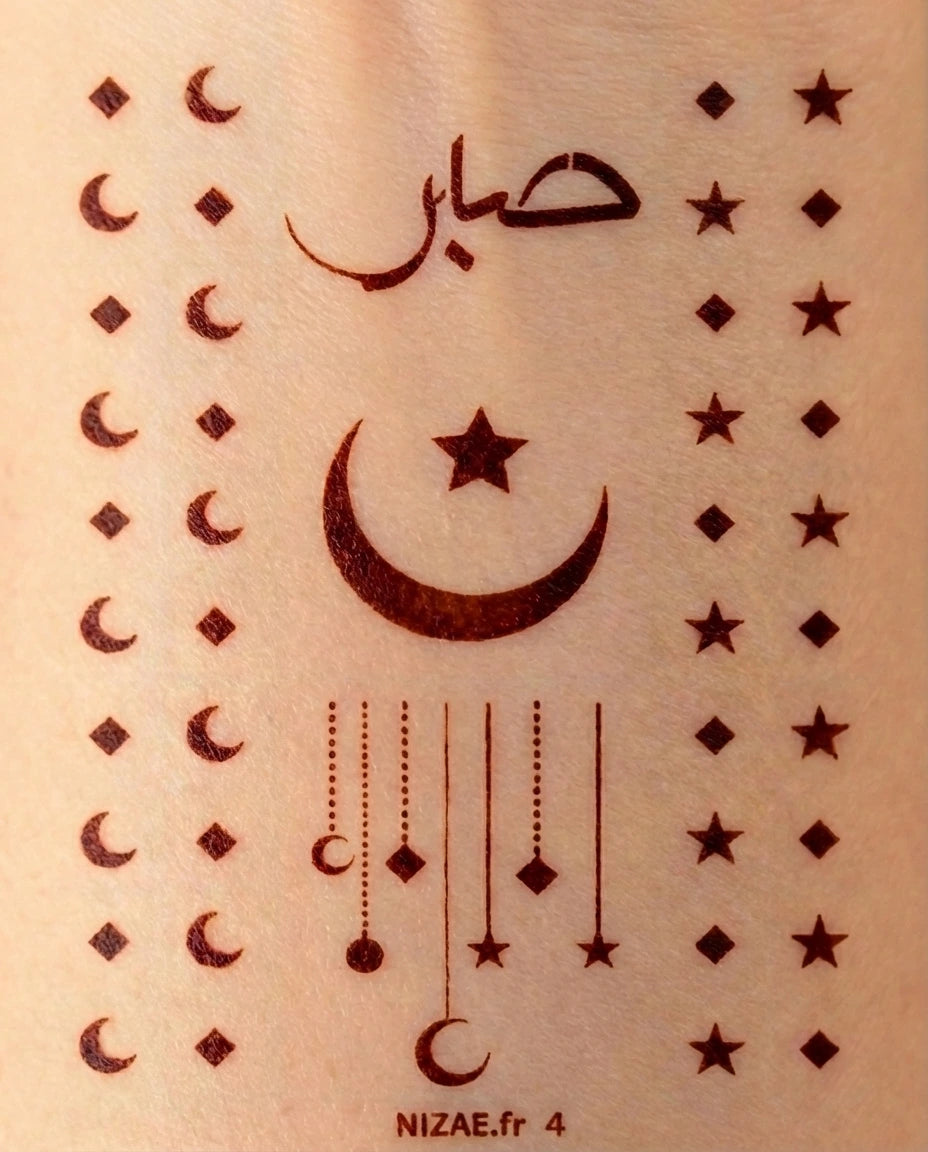 صابر
NIZAE.fr 4